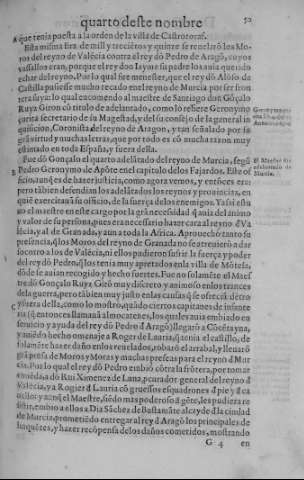 quarto deste nombre 52
A que tenia puesta a la orden de la villa de Castrotoraf.
Esta misma fira de mill y trecientos y quinze se reuelarõ los Mo
ros del reyno de Valēcia contra el rey dõ Pedro de Aragõ, cuyos
vassallos eran, porque el rey don Iayme su padre los auia querido
echar del reyno. Por la qual fue menester, que el rey dõ Alõso de
Castilla pusiesse mucho recado en el reyno de Murcia por ser fron
tera suya: lo qual encomendo al maestre de Santiago don Gõçalo
Ruyz Giron cõ titulo de adelantado, como lo refiere Geronymo
çurita secretario de su Magestad, y del su consejo de la general in
quisicion, Coronista del reyno de Aragon, y tan señalado por su
grã virtud y muchas letras, que por todo es cõ mucha razon muy
estimado en toda España, y fuera della.
Fue dõ Gonçalo el quarto adelãtado del reyno de Murcia, segũ
B Pedro Geronymo de Apõte en el capitulo delos Fajardos. Este of
ficio, aunq̃ es de hazer justicia, como agora vemos, y entõces era:
pero tãbien defendian los adelãtados los reynos y prouincias, en
quiē exercitauã su officio, de la fuerça de los enemigos. Ya si esta
uo el maestre en este cargo por la grã necessidad q̃ auia del animo
y valor de su persona, pues era necessario hazer cara al reyno d̃ Va
lēcia, y al de Granada, y aun a toda la Africa. Aprouechò tanto su
presencia, q̃ los Moros del reyno de Granada no se atreuierõ a dar
socorro a los de Valēcia, ni ellos pudieron sufrir la fuerça y poder
del rey dõ Pedro, q̃ los tenia muy apretados en la villa de Mõtesa,
dõde se auian recogido y hecho fuertes. Fue no solamēte el Maes
tre dõ Gonçalo Ruyz Girõ muy discreto y animoso en los trances
dela guerra, pero tãbien muy justo en las causas q̃ se ofreciã dētro
C y fuera della, como lo mostro, quãdo ciertos capitanes de infante
ria (q̃ entonces llamauã almocatenes, a los quales auia embiado en
seruicio y ayuda del rey dõ Pedro d̃ Aragõ) llegarõ a Cõcētayna,
y auiēdo hecho omenaje a Roger de Lauria, q̃ tenia el castillo, de
solamēte hazer daño en los reuelados, robarõ el arrabal, y lleuarõ
grã presa de Moros y Moras y muchas preseas para el reyno d̃ Mur
cia. Por lo qual el rey dõ Pedro embiò cõtra la frõtera, por tomar
emiēda, a dõ Rui Ximenez de Luna, pcurador general del reyno d̃
Valēcia, y a Roger d̃ Lauria cõ gruessos esquadrones d̃ pie y d̃ ca
uallo: y aunq̃ el Maestre, siēdo mas poderoso d̃ gēte, les pudiera re
sistir, embio a ellos a Dia Sãchez de Bustamãte alcayde d̃ la ciudad
de Murcia, prometiēdo entregar al rey d̃ Aragõ los principales de
linquētes, y hazer recõpensa de los daños cometidos, mostrando
G 4 en
El Maestre fue
adelantado de
Murcia.